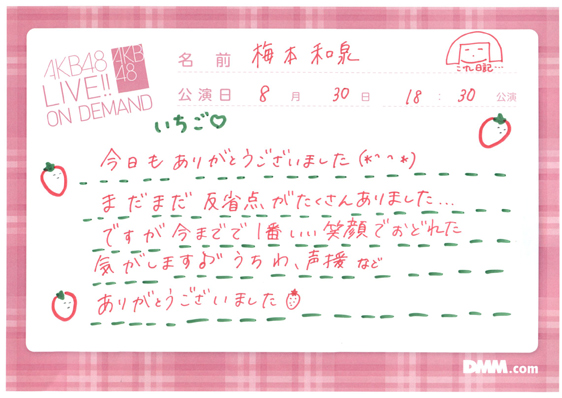 AKB48
LIVE!!
ON DEMAND
AKB
48
名 前 梅本和泉
こすし日記…
公演日 8月 30日 18:30 公演
いちご♡
今日もありがとうございました(*^^*)
まだまだ反省点がたくさんありました…
ですが今までで1番いい笑顔でおどれた
気がします♪うちわ、声援など
ありがとうございました
DMM.com